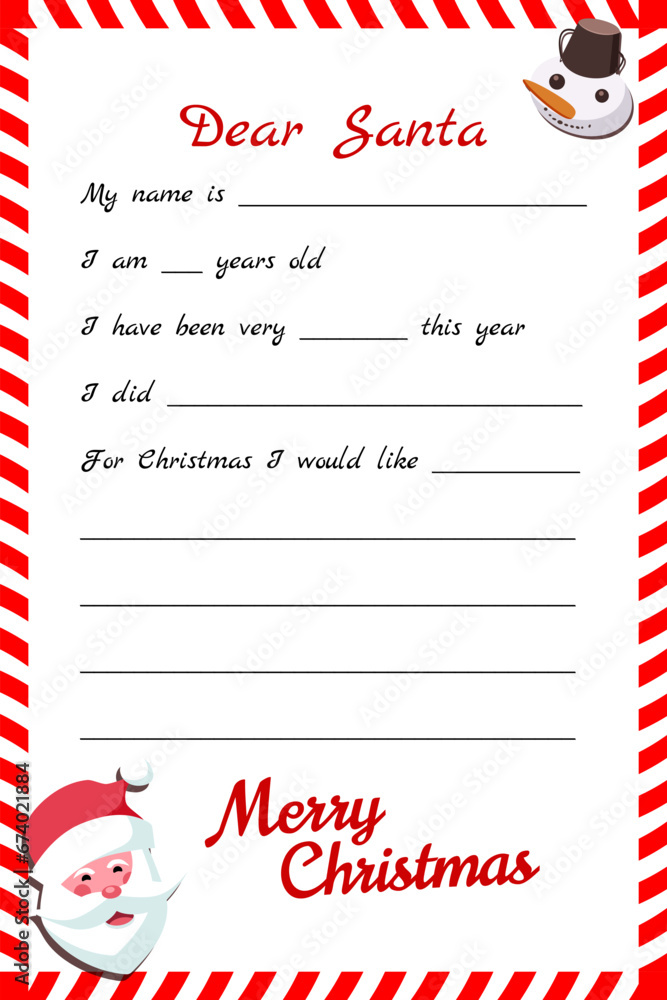 Dear Santa
My name is ____________________
I am ___ years old
I have been very ________ this year
I did ______________________________
For Christmas I would like ___________
____________________________________
____________________________________
____________________________________
____________________________________
Merry
Christmas
Adobe Stock | #674021884